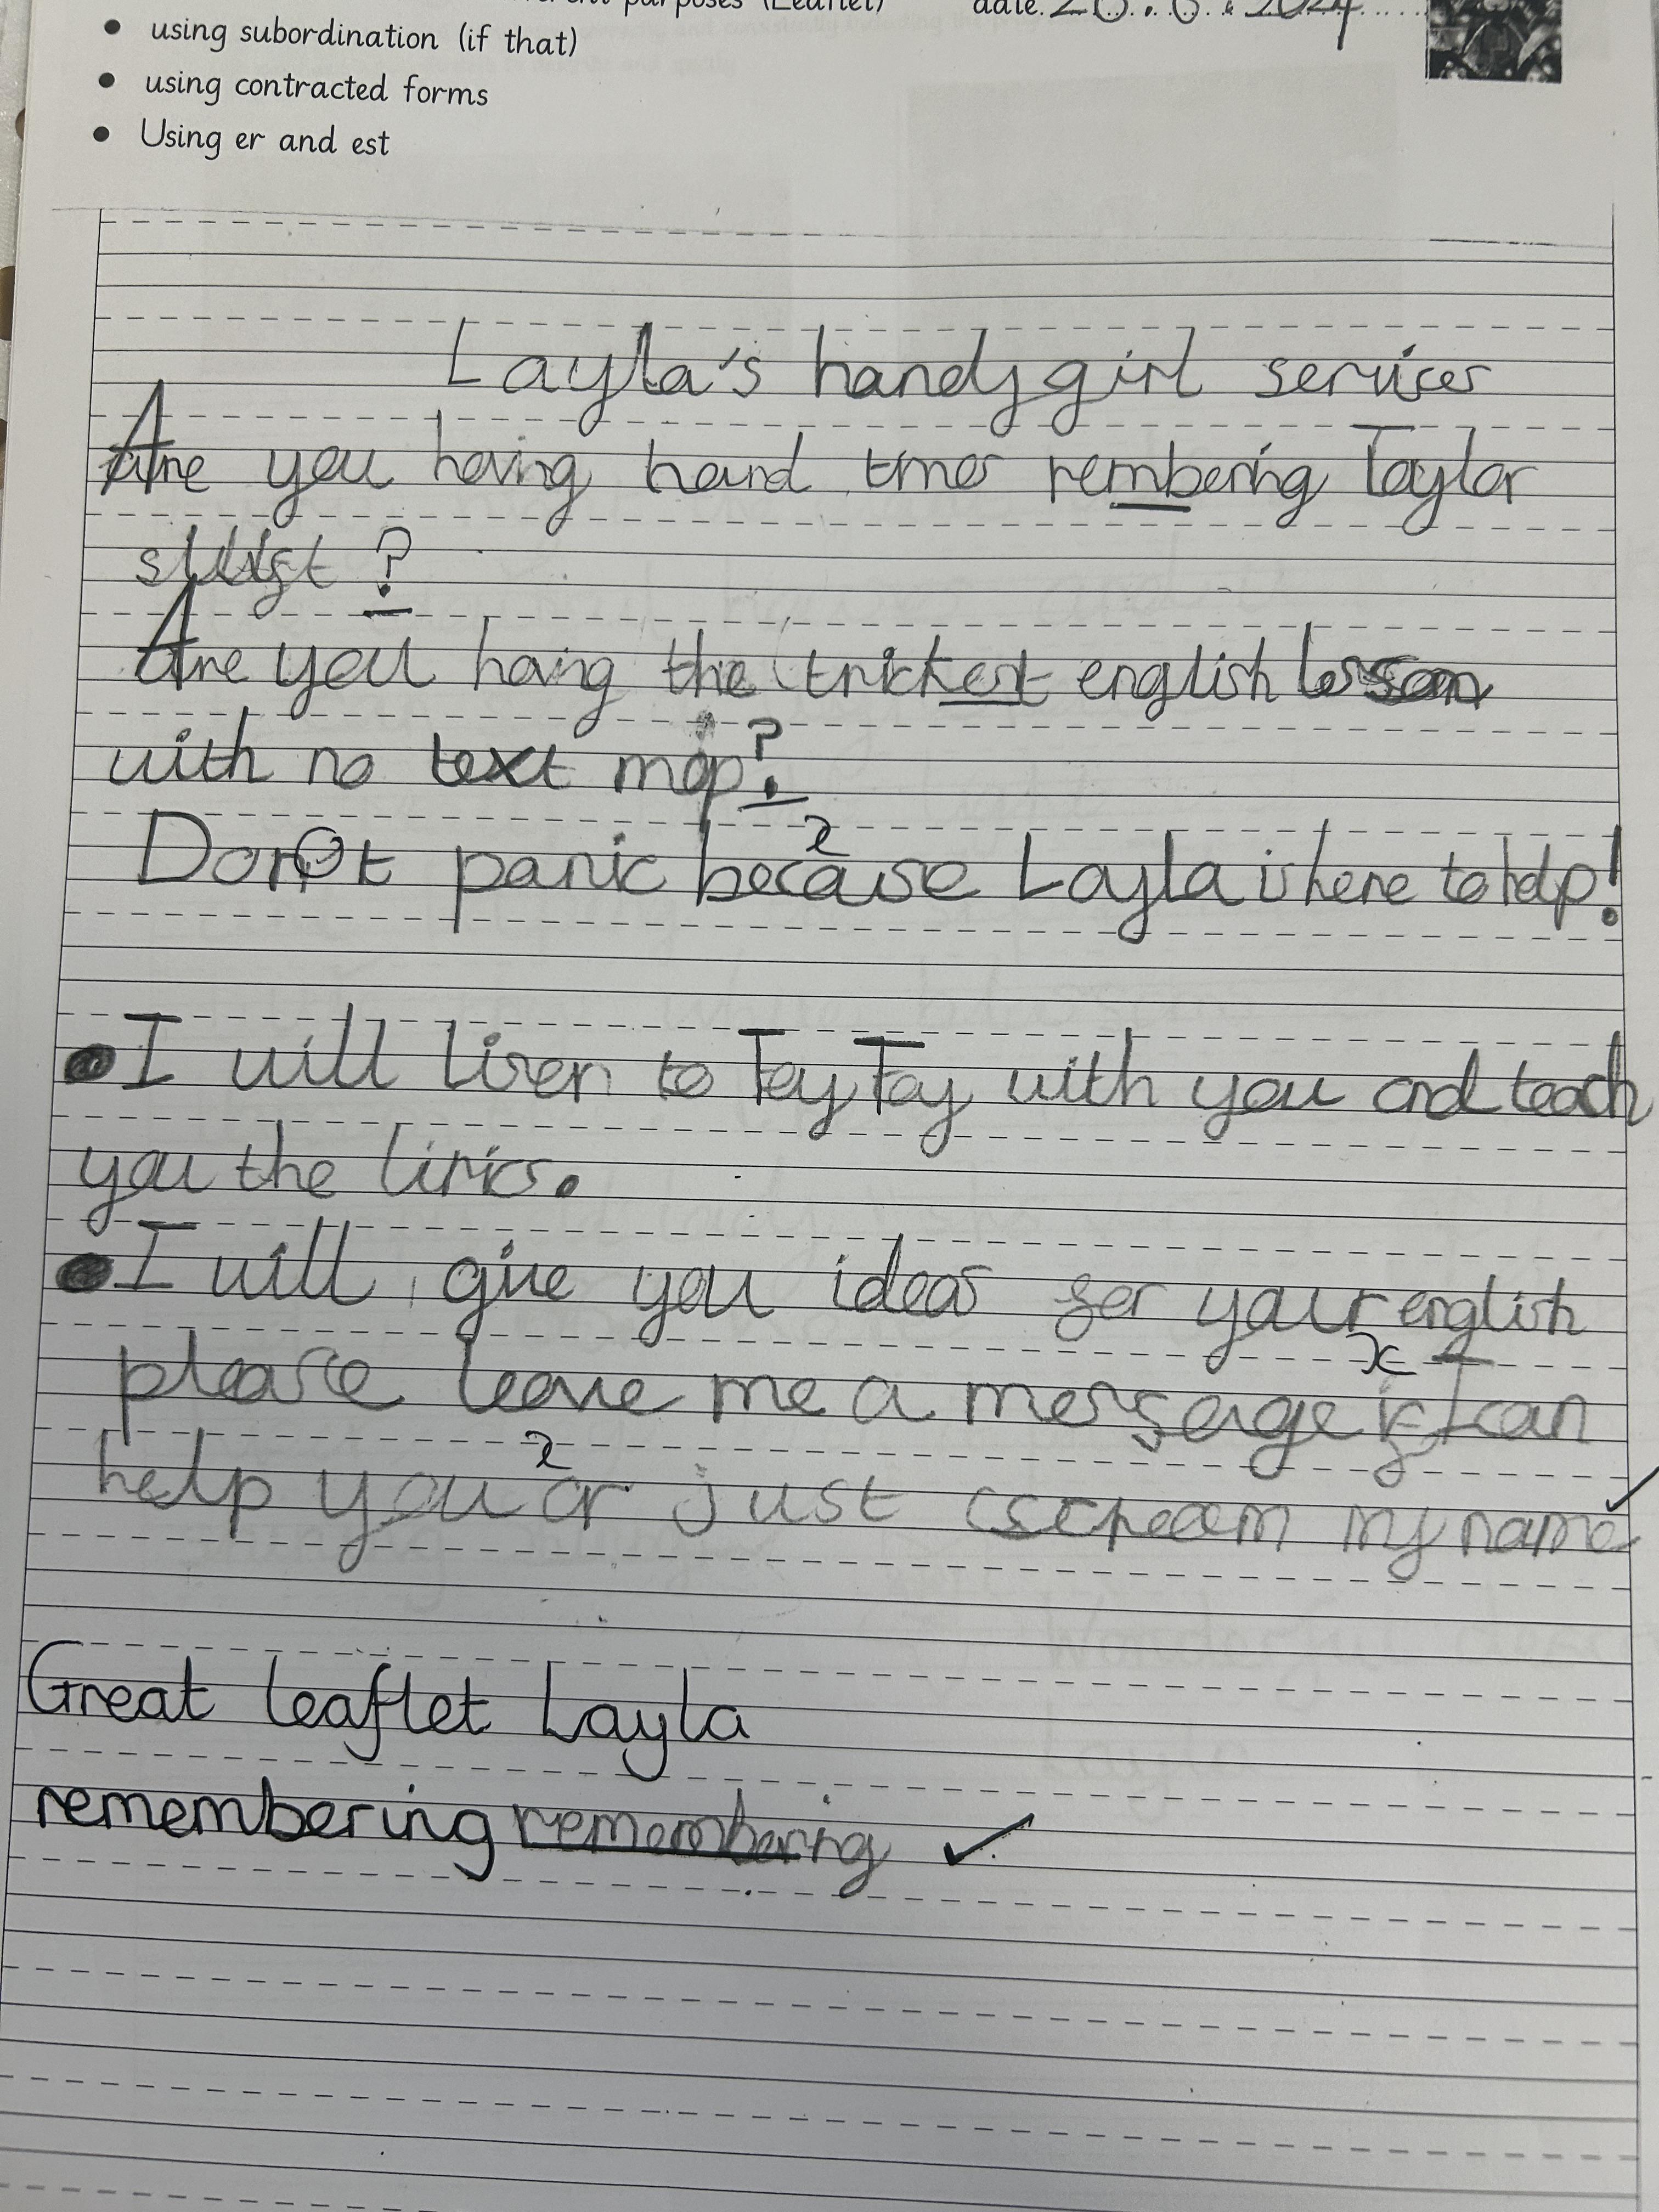 purposes (Leaflet) date
• using subordination (if that)
• using contracted forms
• Using er and est
Layla's handy girl servises
Are you having hard times rembering Taylor
?
Are you haing the trickest english lesson
with no text map?
Don't panic because Layla is here to help!
• I will lisen to Tay Tay with you and teach
you the lirics.
• I will give you ideas for your english
please leave me a message if I can
help you or just scream my name
Great leaflet Layla
remembering remembering ✓